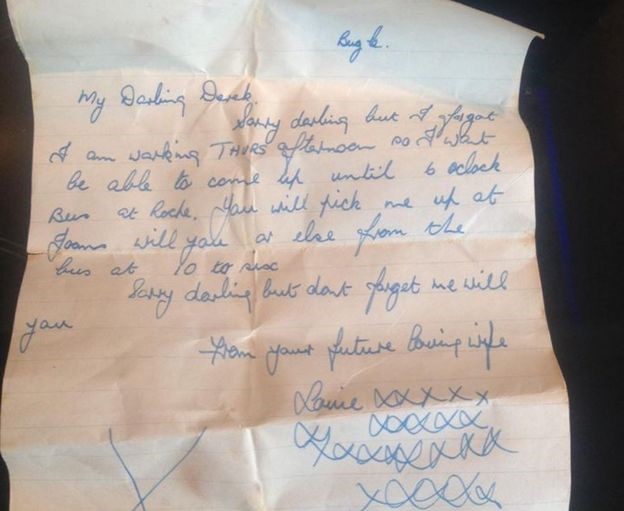 Bugle.
My Darling Derek.
Sorry darling but I forgot
I am working THURS afternoon so I wont
be able to come up until 6 oclock
Bus at Roche. You will pick me up at
Joans will you or else from the
bus at 10 to six
Sorry darling but dont forget me will
you
From your future loving wife
xxxxx
xxxxx
xxxxxxxxx
xxxxx